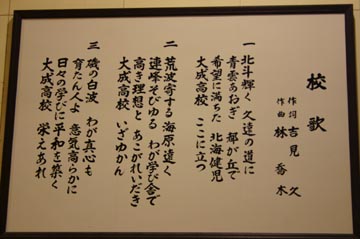 校歌
作詞 吉見 久
作曲 林 喬木
一 北斗輝く 久遠の道に
青雲あおぎ 都が丘で
希望に満ちた 北海健児
大成高校 ここに立つ
二 荒波寄する 海原遠く
連峰そびゆる わが学び舎で
高き理想と あこがれいだき
大成高校 いざゆかん
三 磯の白波 わが真心も
育たん人よ 意気高らかに
日々の学びに 平和を築く
大成高校 栄えあれ